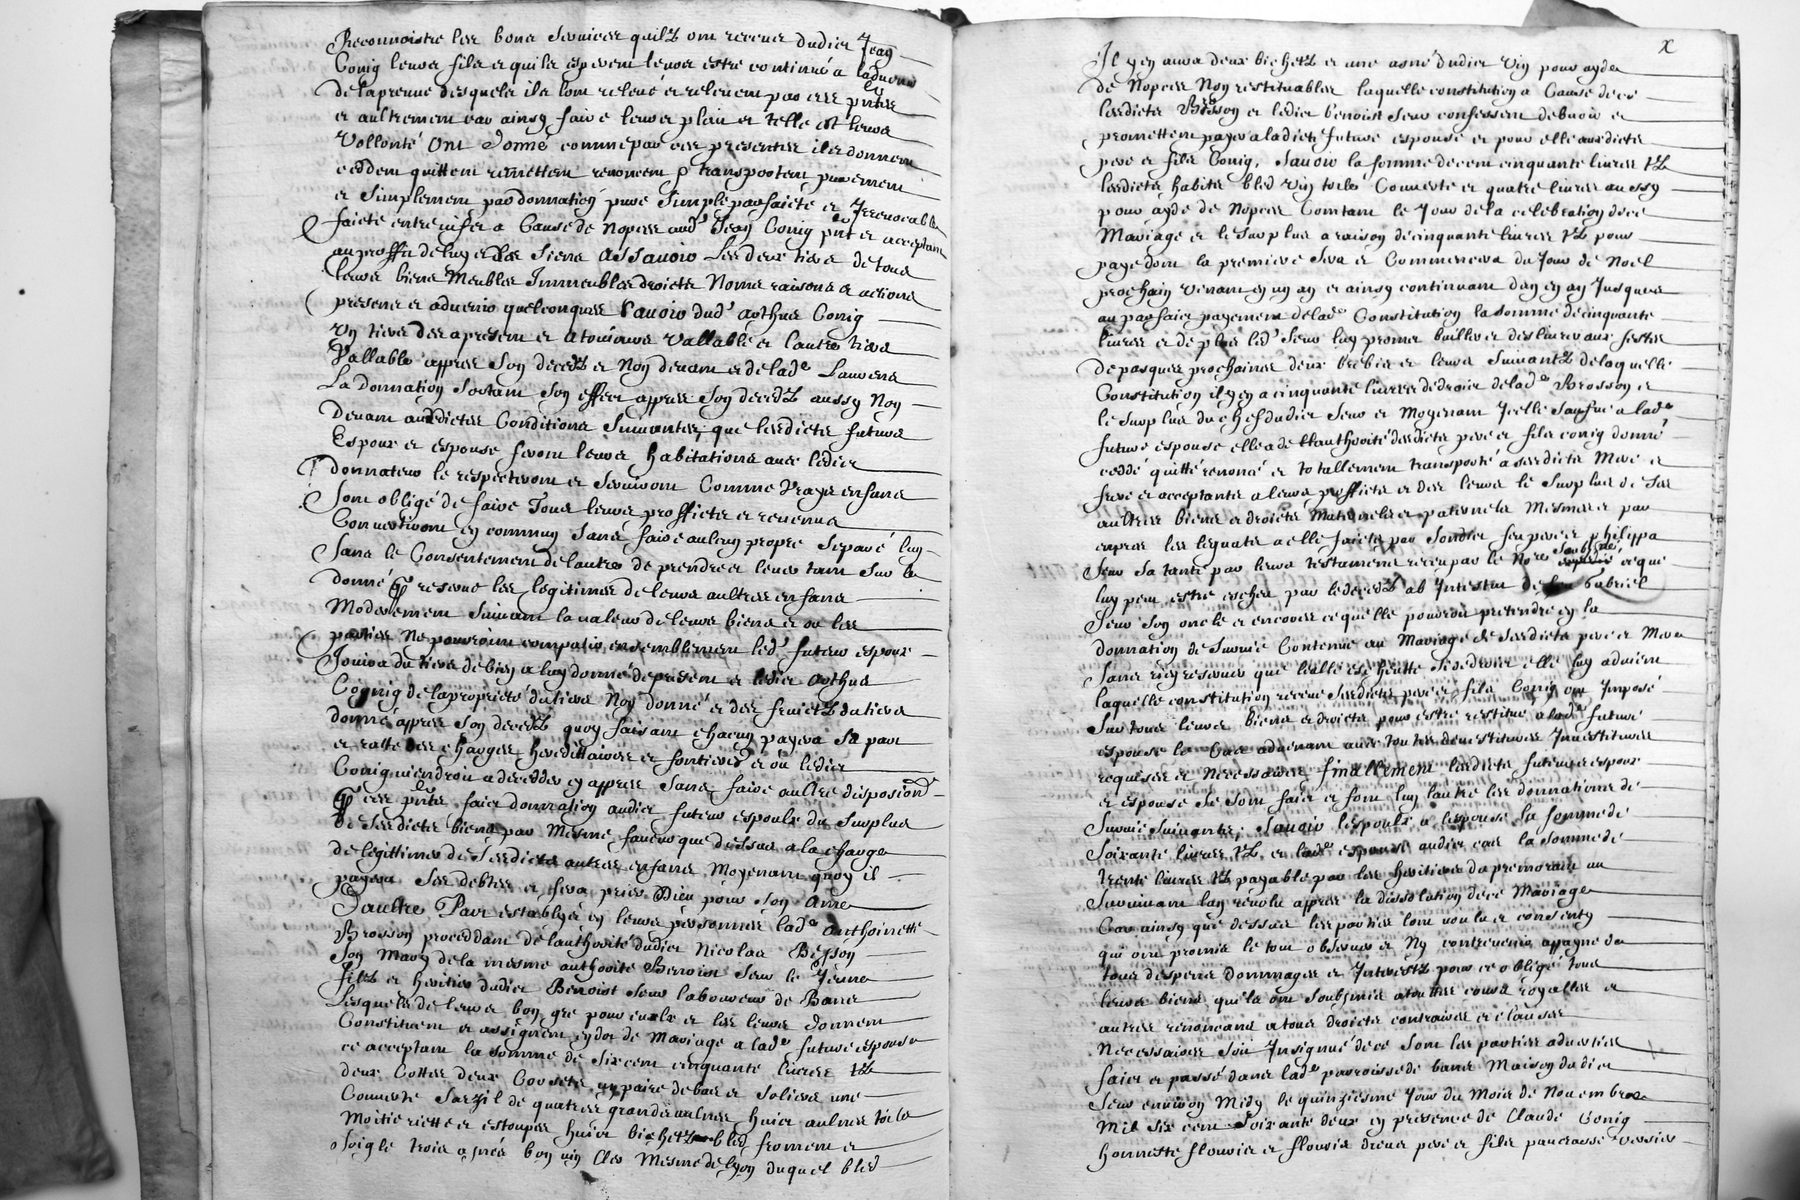 Reconnoistre les bons seruices quilz ont receus dudict Jean
Conig leurs filz et quilz esperent leurs estre continué à ladvenir
de la preuue desquelz ilz lont releué et releuent par ces pntes
et aultrement car ainsy faire leurs plait et telle est leurs
Vollonté Ont donné comme par ces presentes ilz donnent
ceddent quittent remettent renoncent & transportent purement
et simplement par donnation pure simple parfaicte et Irreuocable
faicte entre vifz a Cause de Nopces aud Jean Conig pnt et acceptant
au proffit de luy et des siens Assauoir Les deux tiers de tous
leurs biens Meubles Immeubles droicts Noms raisons et actions
presens et aduenir quelconques Sauoir dud Arthus Conig
Vn tiers des a present et a tousiours Vallable et lautre tiers
Vallable appres son decedz et Non deuant et de lad Laurens
La Donnation sortant son effect appres son decedz aussy Non
Deuant aux dictes Conditions Suiuantes, que lesdicts futurs
Espoux et espouse feront leurs habitations auec ledict
donnateur le respecteront et seruiront Comme Vrays enfans
sont obligé de faire Tous leurs profficts et reuenus
Conuertiront en commun sans faire aulcung propre separé lun
Sans le Consentement de lautre de prendre et leuer tant sur le
donné reserue les legitimes de leurs aultres enfans
Moderement suiuant la valeur de leurs biens et ou les
parties Ne pourroint compatir ensemblement led futur espoux
Jouira du tiers de bien a luy donné de present et ledict Arthus
Cognig de la proprieté du tiers Non donné et des fruictz du tiers
donné appres son decedz quoy faisant chacun payera sa part
et ratte des charges hereditaires et fontieres et ou ledict
Conig viendroit a decedder en appres sans faire aultre disposion
ces pntes faict donnation audict futur espoulx du surplus
de sesdicts biens par Mesme faueur que dessus a la charge
de legittimes de sesdicts autres enfans Moyenant quoy il
payera ses debtes et fera prier Dieu pour son Ame
Daultre Part establyes en leurs personnes lad Anthoinette
Brosson proceddant de lauthorité dudict Nicolas Besson
son Mary de la mesme authorité Benoist Seur le Jeune
filz et heritier dudict Benoist Seur laboureur de Bans
Lesquelz de leurs bon gre pour eux et les leurs donnent
Constituent et assignent en dot de Mariage a lad future espouse
ce acceptant la somme de six cent cinquante liures tz
deux Cottes deux Corsets un paire de bas et soliers une
Couuerte Sarzil de quatres grandes aulnes huict aulnes toile
Moitie riette et estoupes huict bichetz bled froment et
soigle trois asnés bon vin Cler Mesme de lyon duquel bled
x
Il y en aura deux bichetz et une asné dudict Vin pour ayde
de Nopces Non restituables laquelle constitution a Cause de ce
lesdicts Besson et ledict benoist Seur confessent debuoir et
promettent payer a ladicte future espouse et pour elle ausdicts
pere et filz Conig, Sauoir la somme de cent cinquante liures tz
lesdicts habits bled vin toile Couuerte et quatre liures aussy
pour ayde de Nopces Comtant le Jour de la celebration de ce
Mariage et le surplus a raison de cinquante liures tz pour
paye dont la premiere sera et Commencera du Jour de Noel
prochain venant en un an et ainsy continuant dan en an Jusques
au parfaict payement de lad Constitution la somme de cinquante
liures et de plus led Seur luy promet bailler et deslurer aux festes
de pasques prochaines deux brebis et leurs Suiuantz de laquelle
Constitution il y en a cinquante liures de droict de lad Brosson et
le surplus du chef dudict Seur et Moyenant Icelle sauf a lad
future espouse elle a de lauthorité desdicts pere et filz conig donné
ceddé quitté renoncé et totallement transporté a sesdicts Mere et
frere et acceptants a leurs proffict et des leurs le surplus de ses
aultres biens et droicts Maternels et paternels Mesmes et par
expres les legats a elle faicts par sondict feu pere et philippa
Seur sa tante par leurs testament receu par le Nore soubsigné et que
luy peut estre escheu par le decedz ab Intestat de feu Gabriel
Seur son oncle et encores ce quelle pourroit pretendre en la
donnation de Suruie Contenue au Mariage de sesdicts pere et Mere
sans rien reseruer que leslle escheutte sidedroict elle luy aduient
laquelle constitution receue sesdicts pere et filz Conig ont Imposé
sur tous leurs biens et droicts pour estre restitué a lad future
espouse le Cas aduenant auec toutes deuestitures Inuestitures
requises et Necessaires, finallement lesdicts futurs espoux
et espouse se sont faict et font luy lautre les donnations de
Suruie suiuantes, Sauoir lespoulx a lespouse la somme de
soixante liures tz et lad espouse audict cas la somme de
trente liures tz payable par les heritiers du premorant au
suruiuant lan reuolu appres la dissolution de ce Mariage
Car ainsy que dessus les parties lont voulu et consenty
qui ont promis le tout obseruer et Ny contreuenir appayne de
tous despens dommages et Interestz pour ce obligé tous
leurs biens quilz ont soubzmis a touttes cours royalles et
autres renonceans a tous droicts contraires et clauses
Necessaires soit Insignué de ce sont les parties aduerties
faict et passé dans lad parroisse de bans Maison dudict
Seur enuiron Midy le quinziesme Jour du Mois de Nouembre
Mil six cent soixante deux en presence de Claude Conig
honneste flouris et flouris dreuet pere et filz pancrasse Verrier